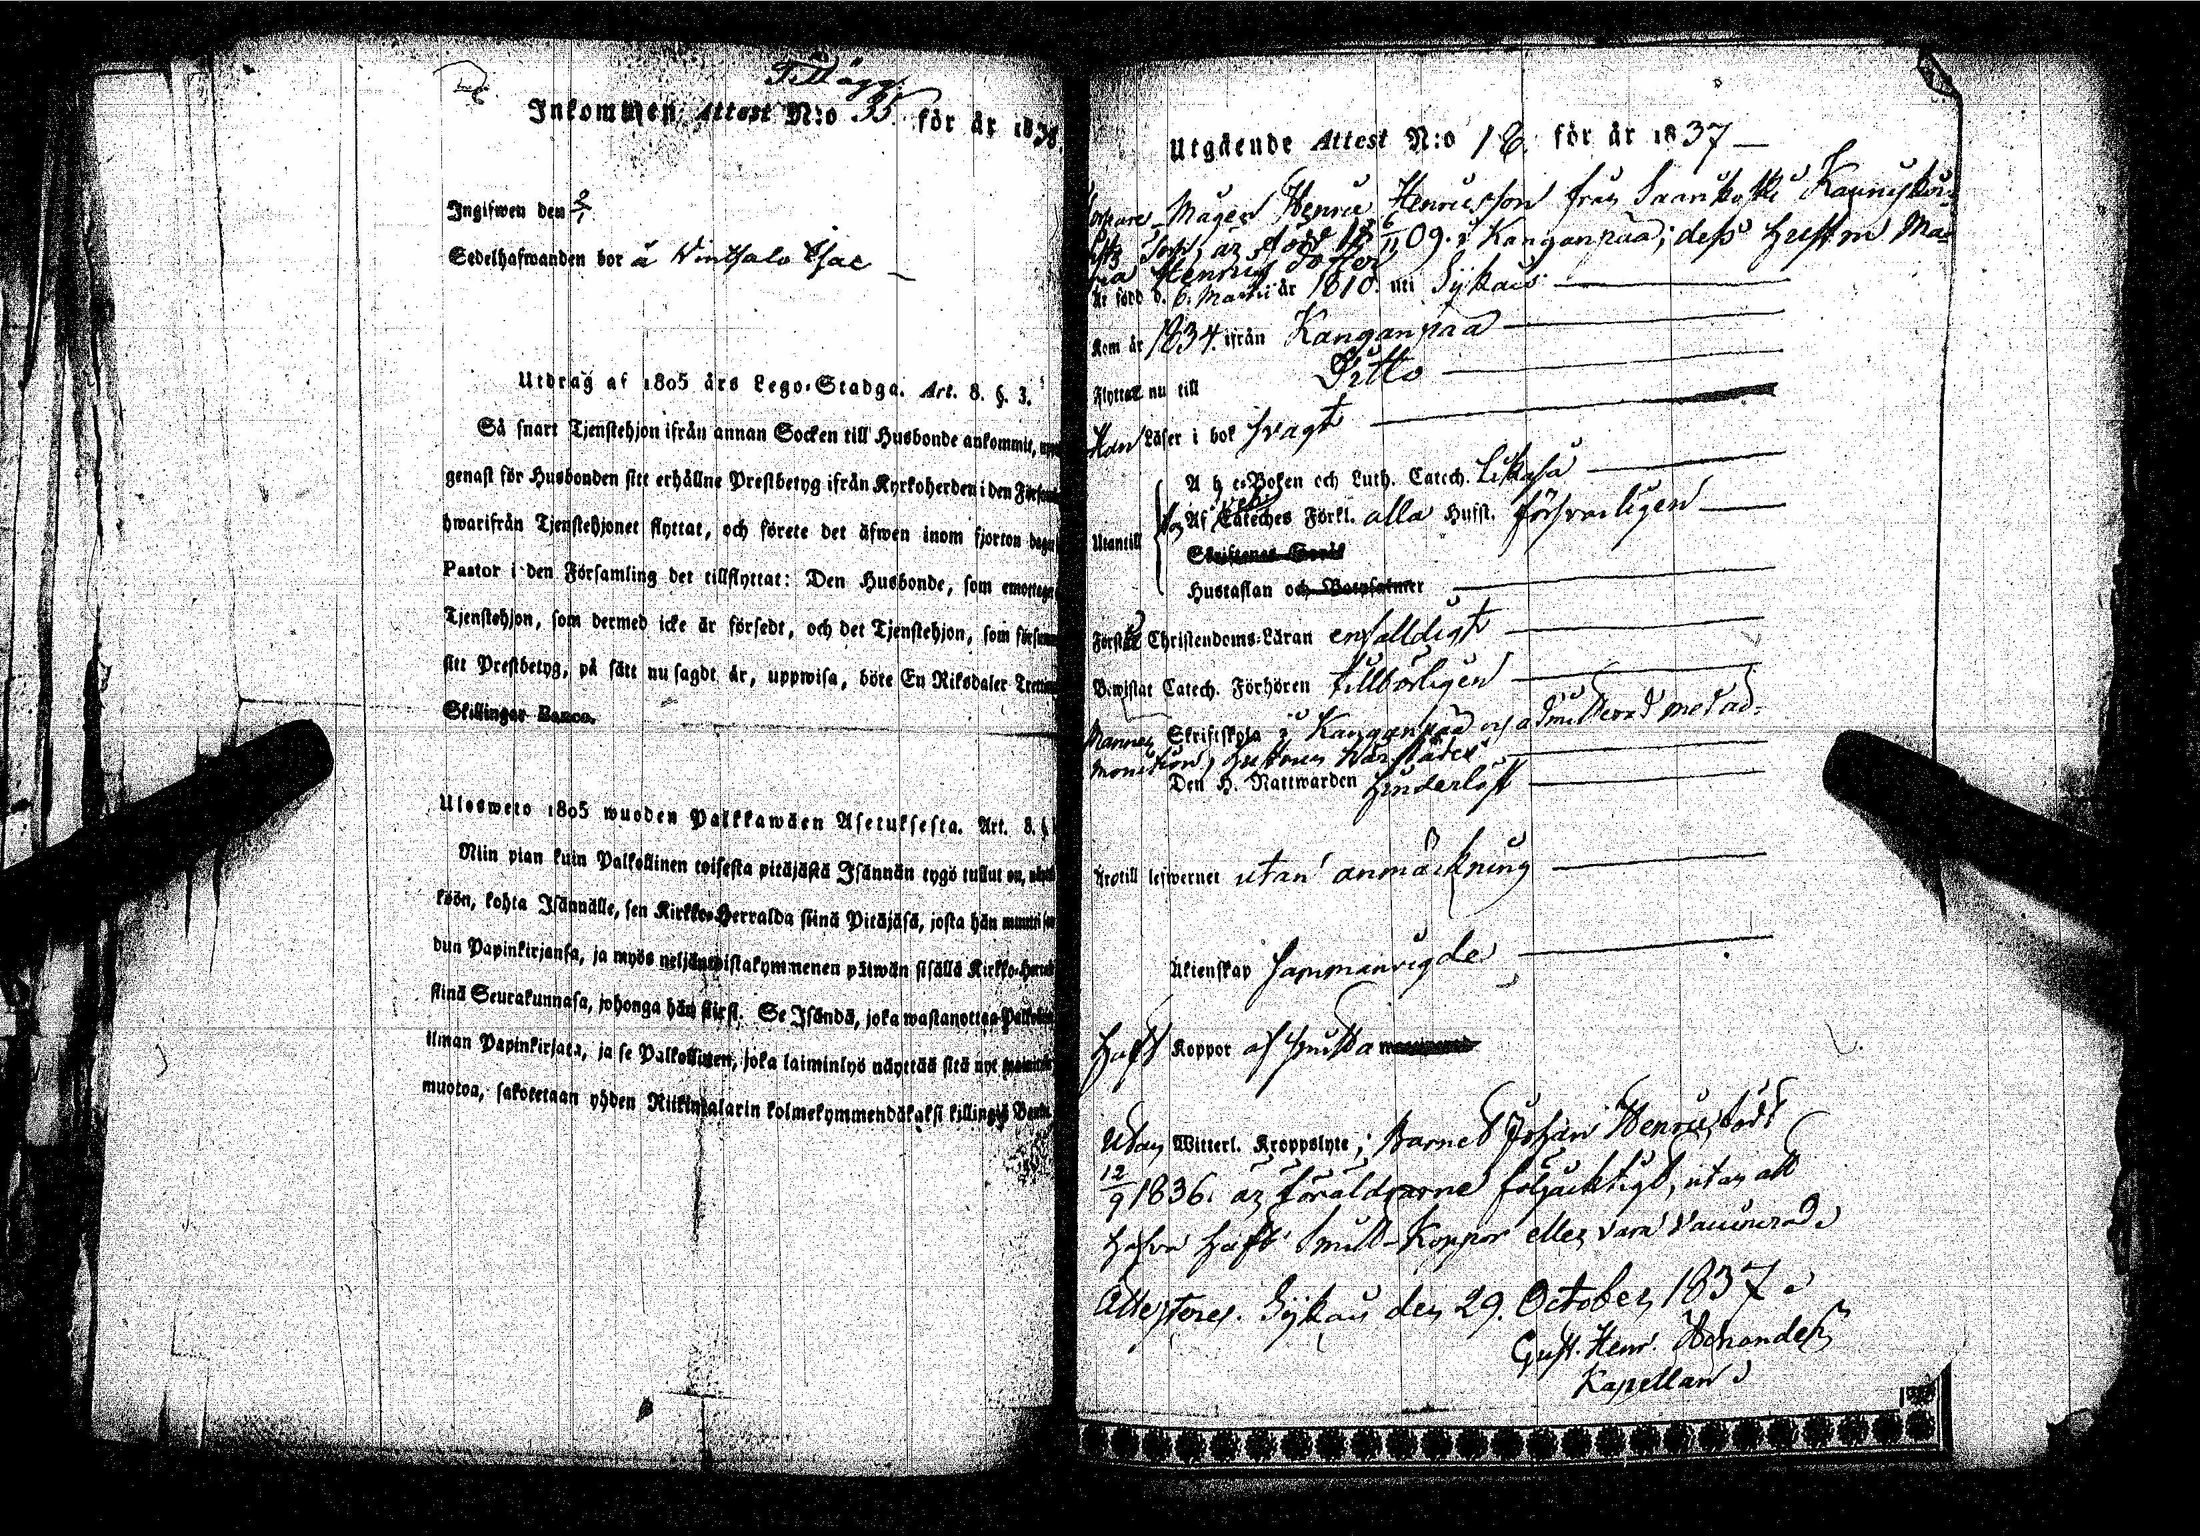 Tillägg
Inkommen Attest N:o 35. för år 1838.
Ingifwen den 2/1
Sedelhafwanden bor å
Utdrag af 1805 års Lego-Stadga. Art. 8. §. 3.
Så snart Tjenstehjon ifrån annan Socken till Husbonde ankommit,
genast för Husbonden sitt erhållne Prestbetyg ifrån Kyrkoherden i den
hwarifrån Tjenstehjonet flyttat, och förete det äfwen inom fjorton
Pastor i den Församling det tillflyttat: Den Husbonde, som
Tjenstehjon, som dermed icke är försedt, och det Tjenstehjon, som
sitt Prestbetyg, på sätt nu sagdt är, uppwisa, böte En Riksdaler
Skillingar Banco.
Ulosweto 1805 wuoden Palkkawäen Asetuksesta. Art. 8. §.
Niin pian kuin Palkollinen toisesta pitäjästä Isännän tygö tullut on,
köön, kohta Isännälle, sen Kirkko-Herralda siinä Pitäjäsä, josta hän
dun Papinkirjansa, ja myös neljäntoistakymmenen päiwän sisällä
siinä Seurakunnasa, johonga hän siirsi. Se Isändä, joka wastanottaa
ilman Papinkirjata, ja se Palkollinen, joka laiminlyö näyttää sitä nyt
muotoa, sakotetaan yhden Riikintalarin kolmekymmendäkaksi killingiä
Utgående Attest N:o 18. för år 1837
Mågen Henric Henricsson från
född 18 6/11 09. i Kanganpää; dess hustru Ma-
ria Henrics dotter
är född d. 6. Martii år 1810. uti Sykais
Kom år 1834. ifrån Kanganpää
Flyttar nu till Ditto
Han Läser i bok svagt
A b c-Boken och Luth. Catech. likaså
Utantill
Af Cateches Förkl. alla Hufst. försvarligen
Hustaflan
Förstår Christendoms-Läran enfalldigt
Bewistat Catech. Förhören tillbörligen
Mannen Skriftskola i Kanganpää och admitterad med ad-
monition, hustrun härstädes
Den H. Nattwarden hinderlöst
Ärotill lefwernet utan anmärkning
Äktenskap sammanvigde
Haft Koppor af smitta
Utan Witterl. Kroppslyte; Barnet Johan Henric född
12/9 1836. är föräldrarne följacktigt, utan att
hafva haft Smitt-Koppor eller vara vaccinerad.
Attesteres. Sykais den 29. October 1837.
Gust. Henr.
Kapellan